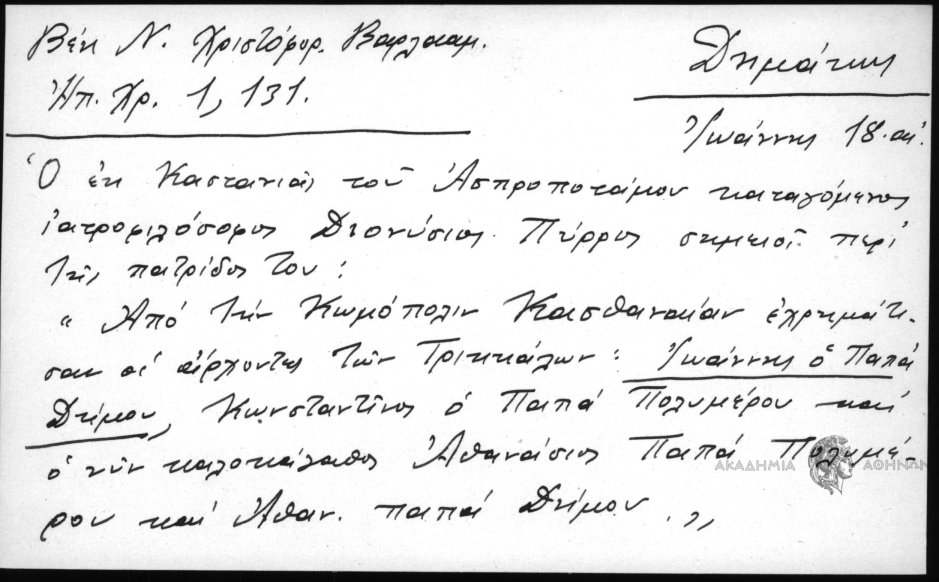 Βέη Ν. Χριστόφορ. Βαρλααμ.
Ἠπ. Χρ. 1, 131.
Δημάκης
Ἰωάννης 18. αἰ.
Ὁ ἐκ Καστανιᾶς τοῦ Ἀσπροποτάμου καταγόμενος
ἰατροφιλόσοφος Διονύσιος Πύρρος σημειοῖ περὶ
τῆς πατρίδος του:
" Ἀπό τήν Κωμόπολιν Κασθαναίαν ἐχρημάτι-
σαν οἱ ἄρχοντες τῶν Τρικκάλων: Ἰωάννης ὁ Παπά
Δήμου, Κωνσταντῖνος ὁ Παπά Πολυμέρου καί
ὁ νῦν καλοκάγαθος Ἀθανάσιος Παπά Πολυμέ-
ρου καί Ἀθαν. παπά Δήμου. „
ΑΚΑΔΗΜΙΑ ΑΘΗΝΩΝ